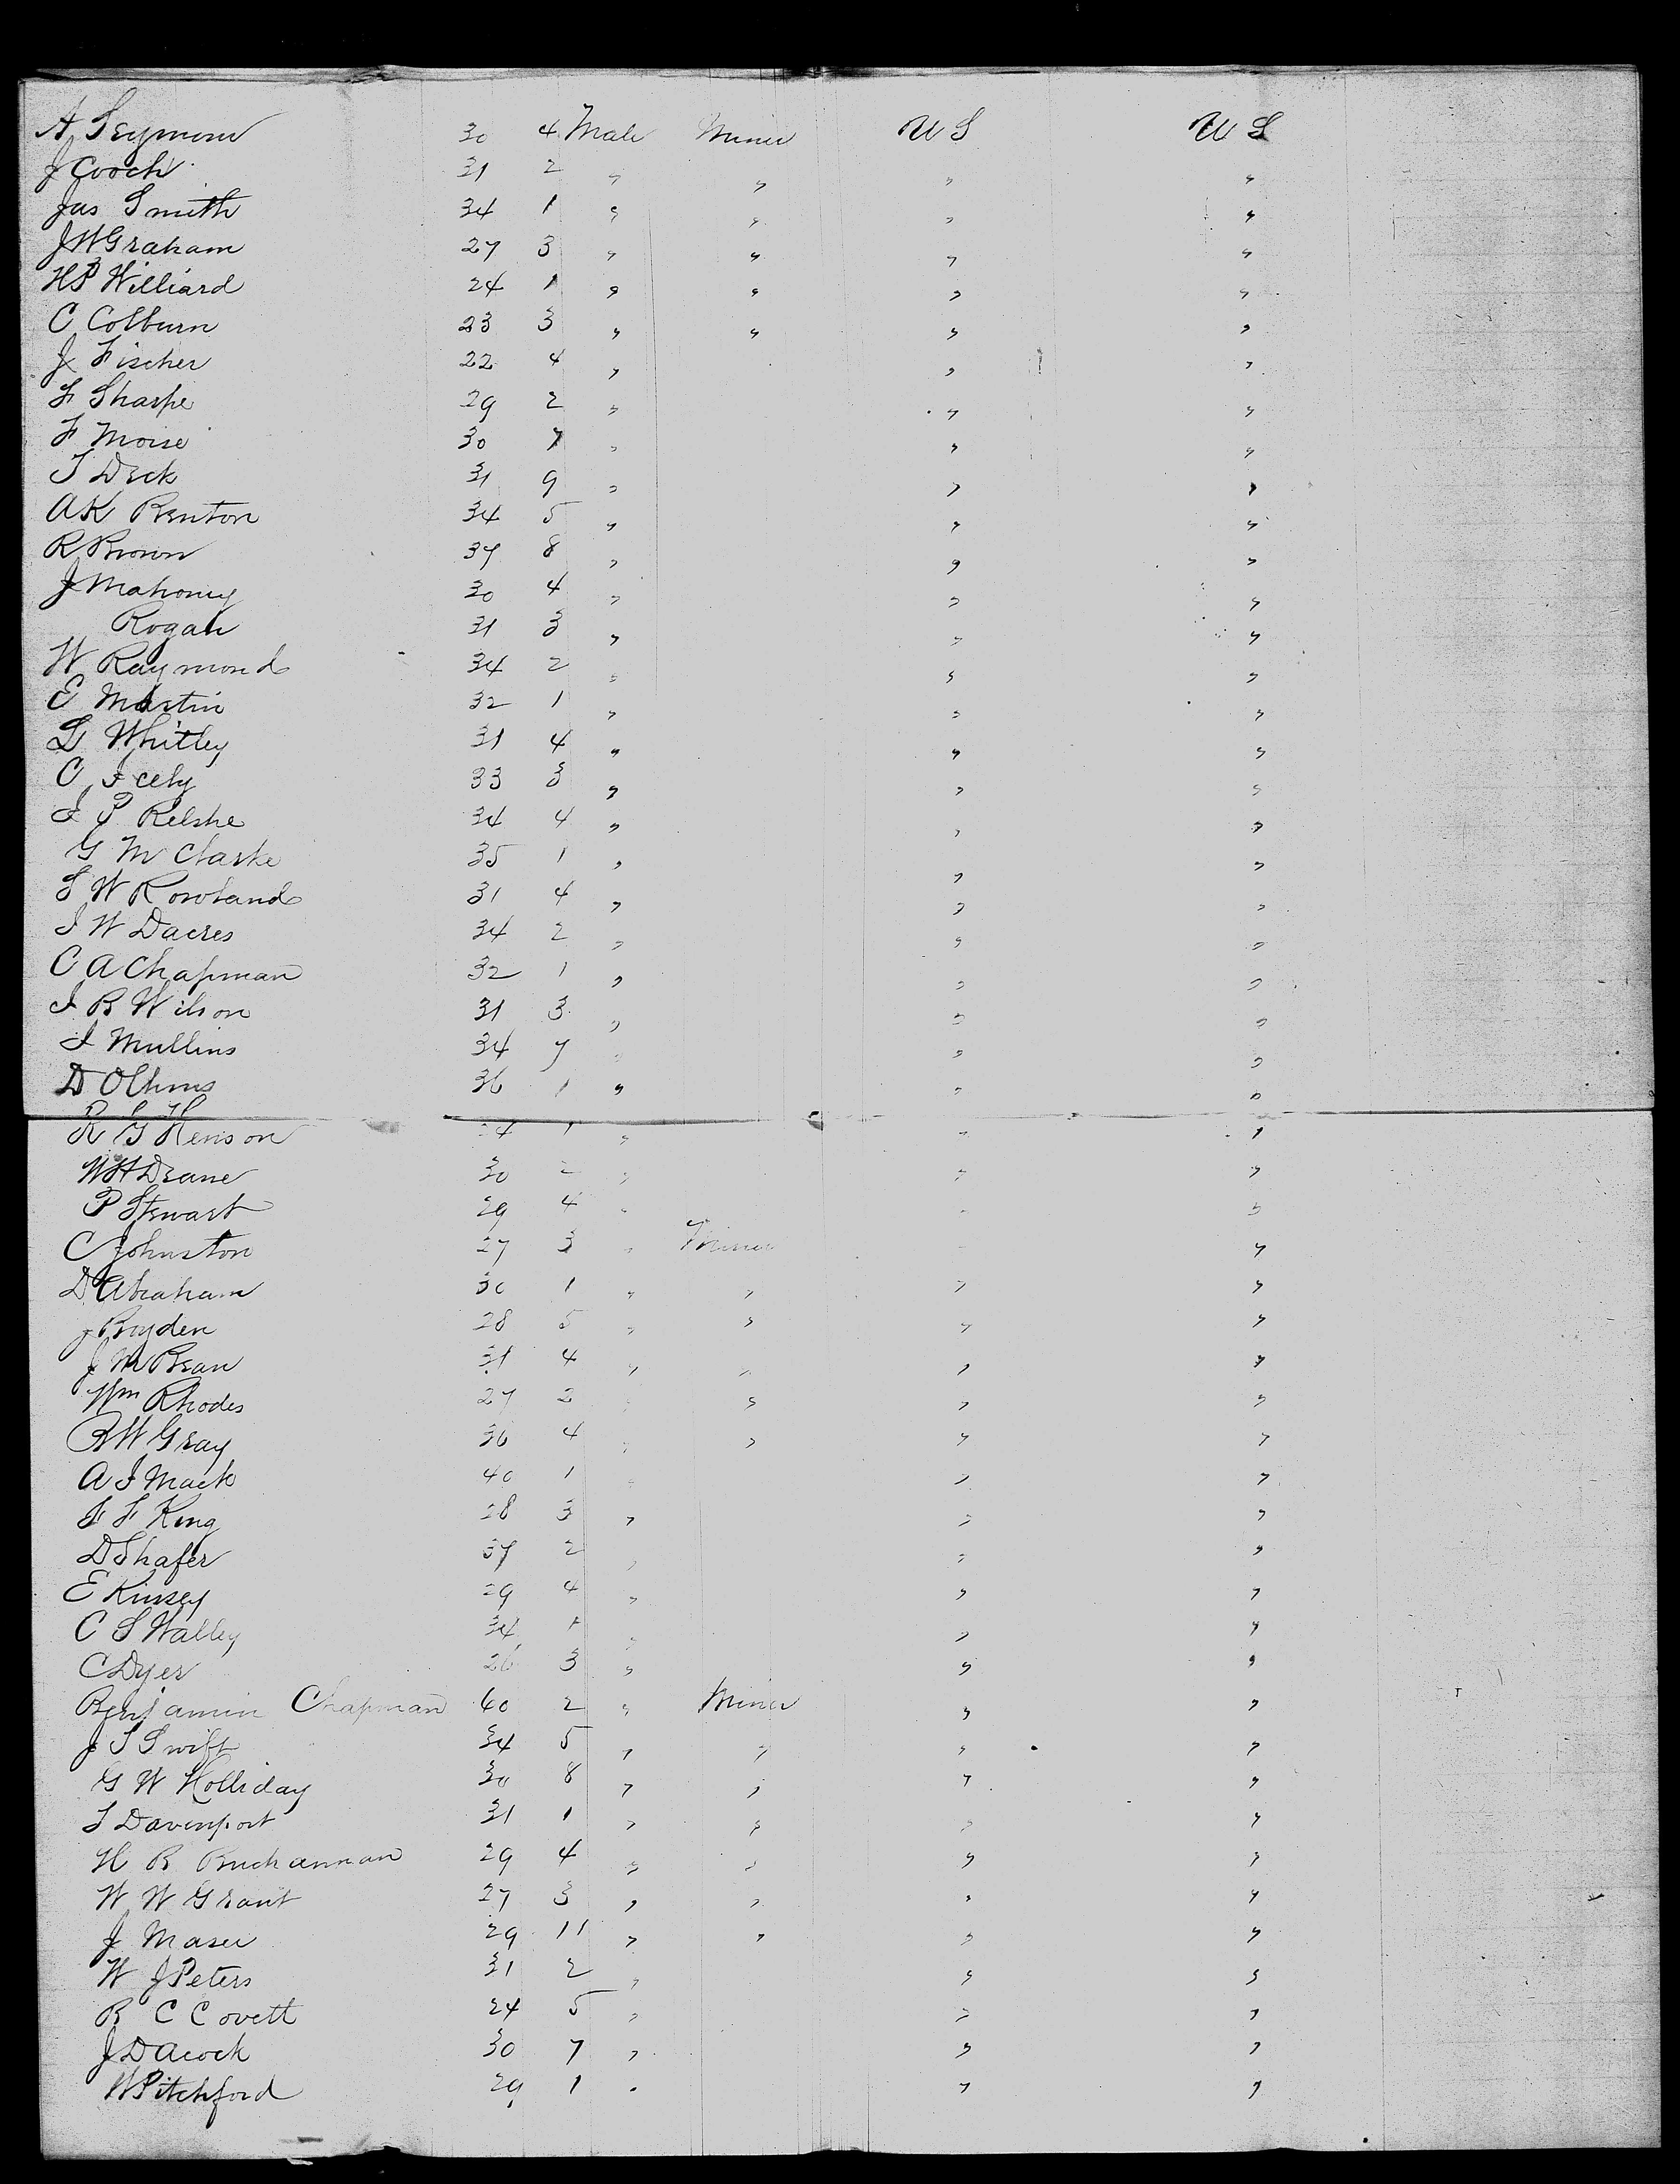 A Seymour 30 4 Male Miner U S U S
J Cooch 31 2 " " " "
Jas Smith 34 1 " " " "
J W Graham 27 3 " " " "
H P Williard 24 1 " " " "
C Colburn 23 3 " " " "
J Fischer 22 4 " " "
F Sharpe 29 2 " " "
F Moise 30 7 " " "
T Deck 31 9 " " "
A K Benton 34 5 " " "
R Brown 37 8 " " "
J Mahoney 30 4 " " "
Rogan 31 3 " " "
W Raymond 34 2 " " "
E Martin 32 1 " " "
L Whitley 31 4 " " "
C 33 3 " " "
I P Kelshe 34 4 " " "
G M Clarke 35 1 " " "
S W Rowland 31 4 " " "
I W Dacres 34 2 " " "
C A Chapman 32 1 " " "
I B Wilson 31 3 " " "
I Mullins 34 7 " " "
D Olhms 36 1 " " "
R G Henson 34 1 " " "
W H Deane 30 2 " " "
P Stewart 29 4 " " "
C Johnston 27 3 " Miner " "
D Abraham 30 1 " " " "
J Boyden 28 5 " " " "
J M Bean 31 4 " " " "
Wm Rhodes 27 2 " " " "
R W Gray 36 4 " " " "
A I Mack 40 1 " " "
F F King 28 3 " " "
D Shafer 37 2 " " "
E Kinsey 29 4 " " "
C S Walley 34 1 " " "
C Dyer 26 3 " " "
Benjamin Chapman 60 2 " Miner " "
J S Swift 34 5 " " " "
G W Holliday 30 8 " " " "
T Davenport 31 1 " " " "
H B Buchannan 29 4 " " " "
W W Grant 27 3 " " " "
J Maser 29 11 " " " "
W J Peters 31 2 " " "
B C Covett 24 5 " " "
J D Acock 30 7 " " "
W Pitchford 29 1 " " "